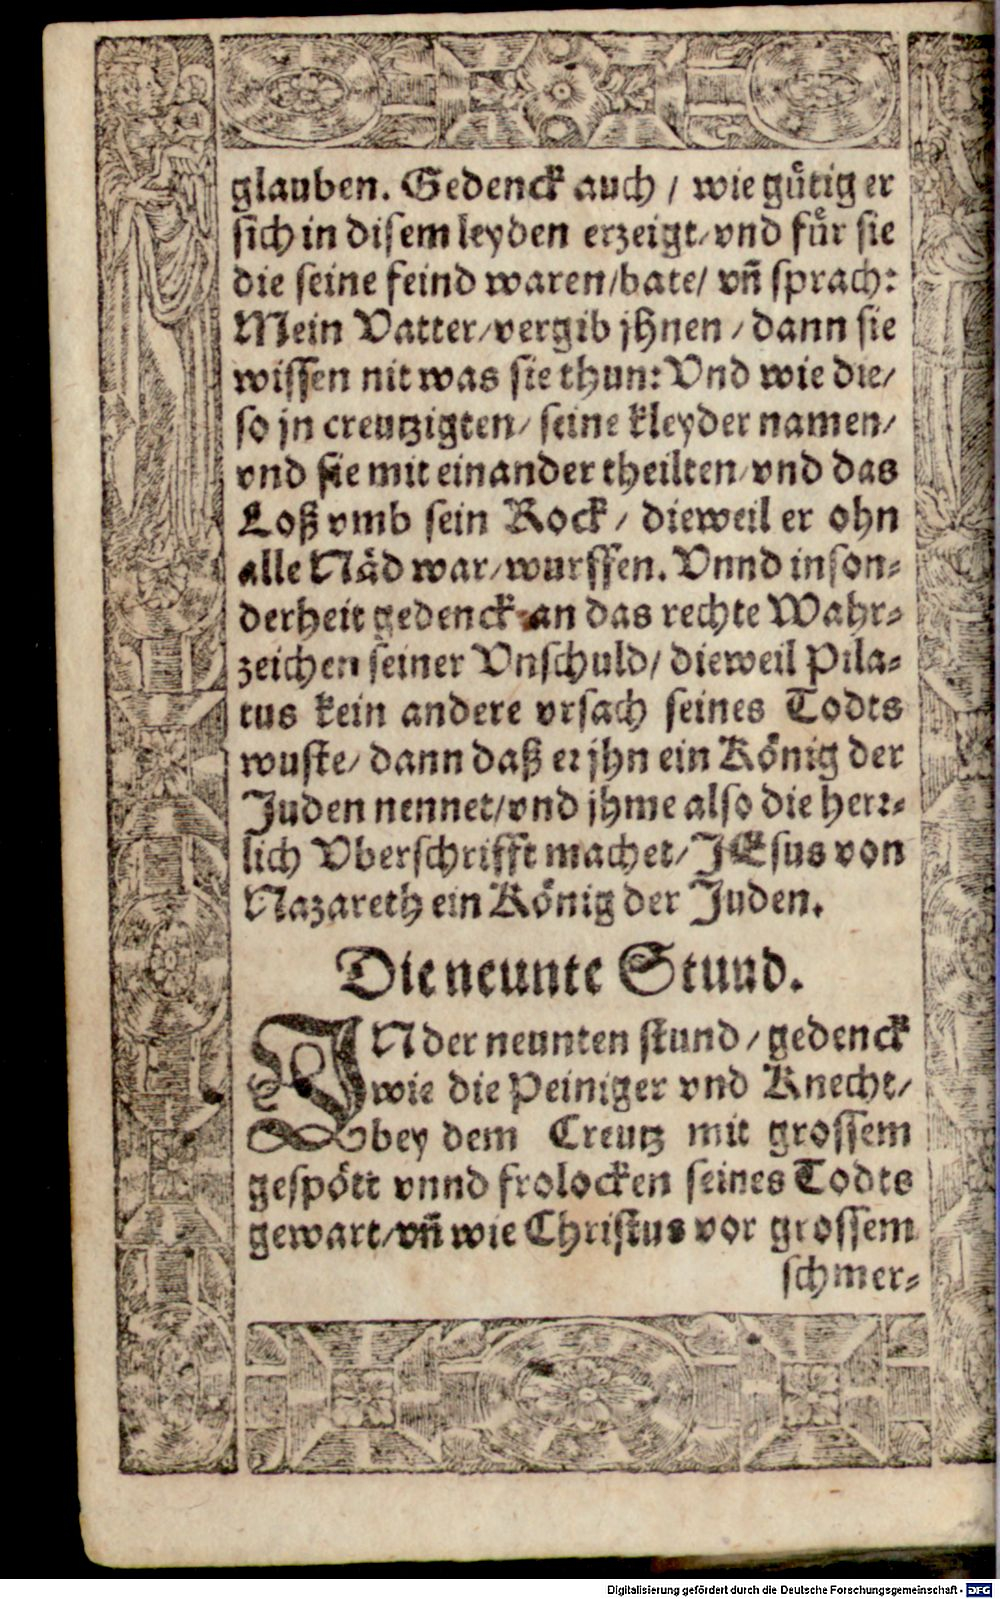 glauben. Gedenck auch / wie gütig er
sich in disem leyden erzeigt/ vnd fůr sie
die seine feind waren/bate/ vñ sprach:
Mein Vatter/vergib jhnen / dann sie
wissen nit was sie thun: Vnd wie die/
so jn creutzigten/ seine kleyder namen/
vnd sie mit einander theilten/vnd das
Loß vmb sein Rock / dieweil er ohn
alle Näd war/wurffen. Vnnd inson-
derheit gedenck an das rechte Wahr-
zeichen seiner Vnschuld/ dieweil Pila-
tus kein andere vrsach seines Todts
wuste/ dann daß er jhn ein König der
Juden nennet/vnd jhme also die herr-
lich Vberschrifft machet/JEsus von
Nazareth ein König der Juden.
Die neunte Stund.
IN der neunten stund / gedenck
wie die Peiniger vnd Knecht/
bey dem Creutz mit grossem
gespött vnnd frolocken seines Todts
gewart/vñ wie Christus vor grossem
schmer-
Digitalisierung gefördert durch die Deutsche Forschungsgemeinschaft - DFG